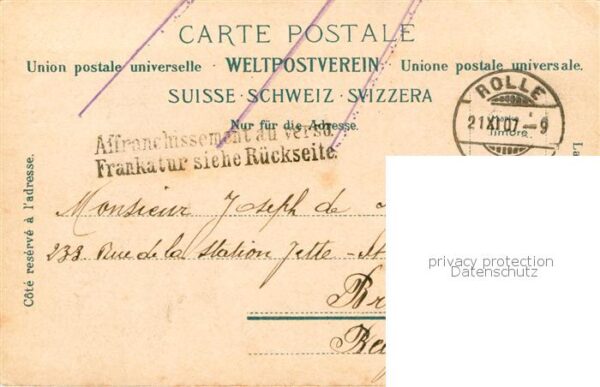 CARTE POSTALE
Union postale universelle · WELTPOSTVEREIN · Unione postale universale.
SUISSE · SCHWEIZ · SVIZZERA
Nur für die Adresse.
ROLLE
21XI07.-9
Affranchissement au verso.
Frankatur siehe Rückseite.
Côté resérvé à l'adresse.
La
Monsieur Joseph de
233 Rue de la Station Jette - St
Br
Be
privacy protection
Datenschutz